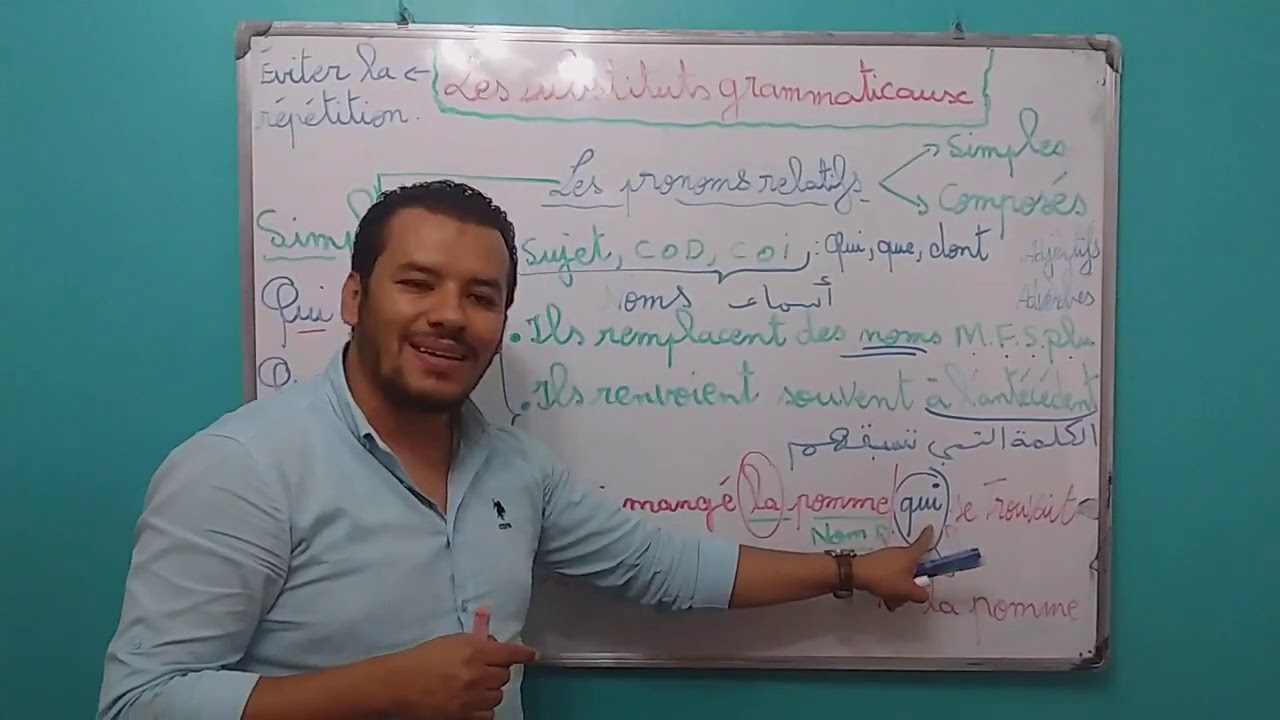 Éviter la ← Les substituts grammaticaux
répétition.
Les pronoms relatifs
Simples
Composés
Sujet, COD, COi, : qui, que, dont
Adjectifs
Noms أسماء
Adverbes
Qui
• Ils remplacent des noms M. F. S. plu
• Ils renvoient souvent à l'antécédent
الكلمة التي تسبقهم
mangé la pomme qui se trouvait
Nom
la pomme